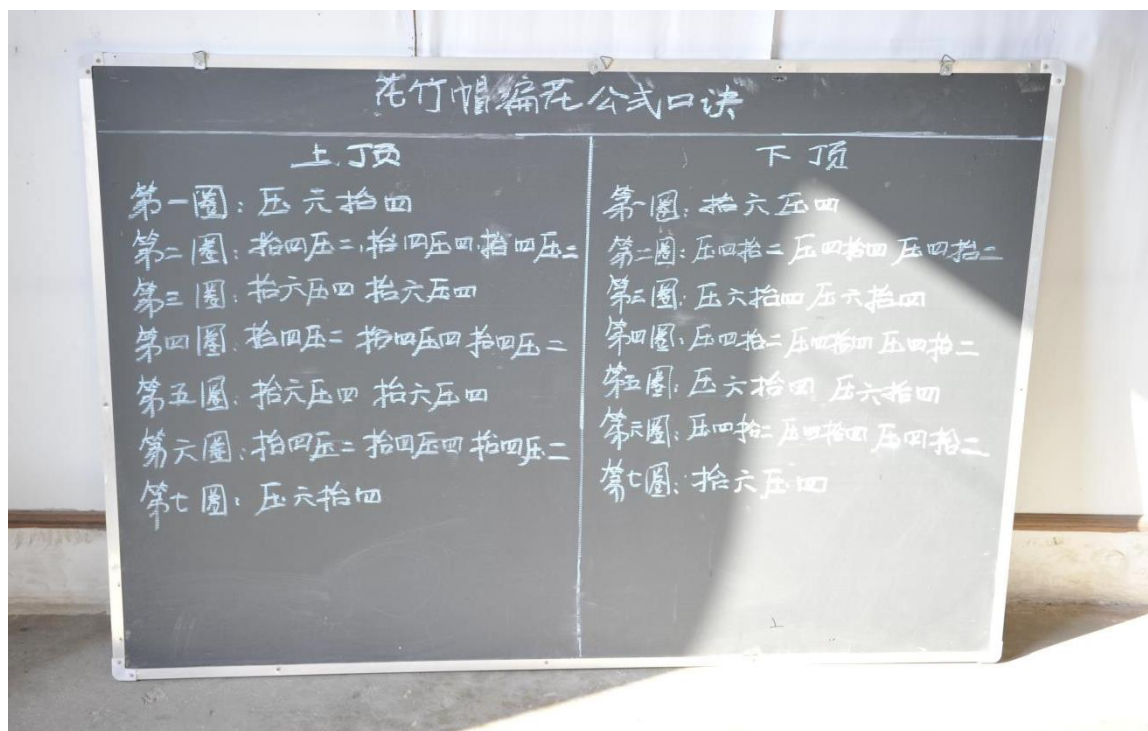 花竹帽编花公式口诀
上顶
第一圈：压六拾四
第二圈：拾四压二，拾四压四，拾四压二
第三圈：拾六压四 拾六压四
第四圈：拾四压二 拾四压四 拾四压二
第五圈：拾六压四 拾六压四
第六圈：拾四压二 拾四压四 拾四压二
第七圈：压六拾四
下顶
第一圈：拾六压四
第二圈：压四拾二 压四拾四 压四拾二
第三圈：压六拾四 压六拾四
第四圈：压四拾二 压四拾四 压四拾二
第五圈：压六拾四 压六拾四
第六圈：压四拾二 压四拾四 压四拾二
第七圈：拾六压四